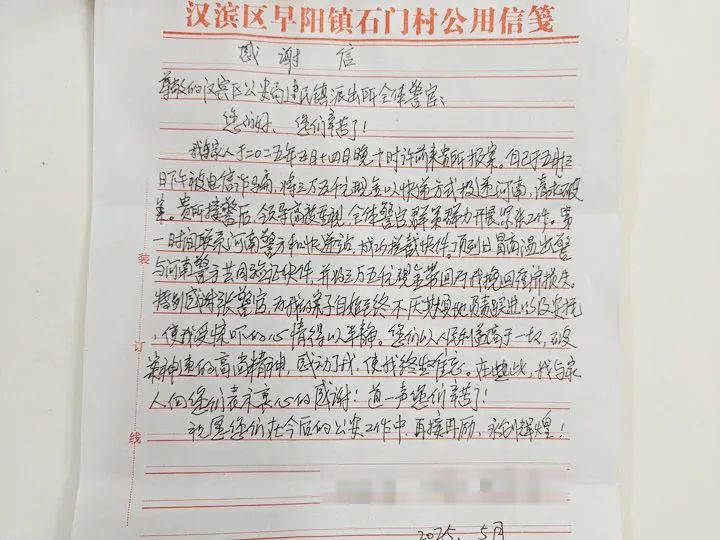 汉滨区早阳镇石门村公用信笺
感谢信
尊敬的汉滨区公安局建民镇派出所全体警官：
您们好、您们辛苦了！
我与家人于二〇二五年五月十四日晚十时许前来贵所报案。自己于五月十三
日下午被电信诈骗，将三万五仟元现金以快递方式投递河南，落款破
案。贵所接警后，领导高度重视，全体警官群策群力开展紧张工作。第
一时间联系河南警方和快递站，成功拦截快件。顶烈日冒高温出警
与河南警方共同验证快件，并将三万五仟元现金带回为我挽回经济损失。
特别感谢张警官，为我的案子自始至终不厌其烦地负责跟进以及安抚
，使我受惊吓的心情得以平静。您们以人民利益高于一切，破
案神速的高尚精神，感动了我，使我终生难忘。在此，我与家
人向您们表示衷心的感谢！道一声您们辛苦了！
祝愿您们在今后的公安工作中，再接再励，永创辉煌！
2025.5月
装
订
线